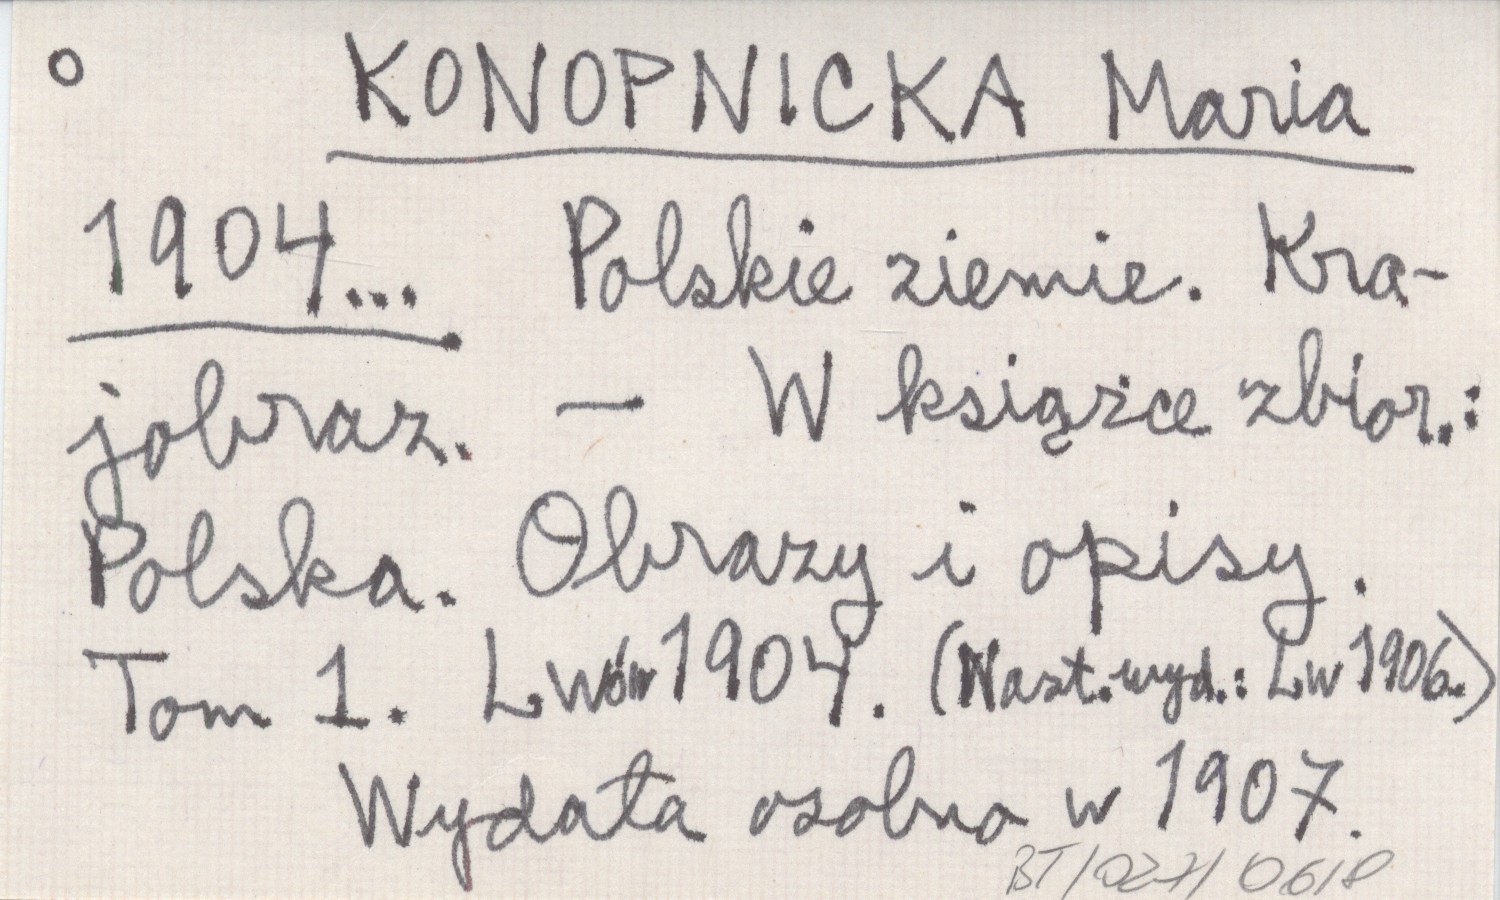 KONOPNICKA Maria
1904... Polskie ziemie. Kra-
jobraz. — W książce zbior.:
Polska. Obrazy i opisy.
Tom 1. Lwów 1904. (Nast. wyd.: Lw 1906.)
Wydała osobno w 1907.
BT/027/0618